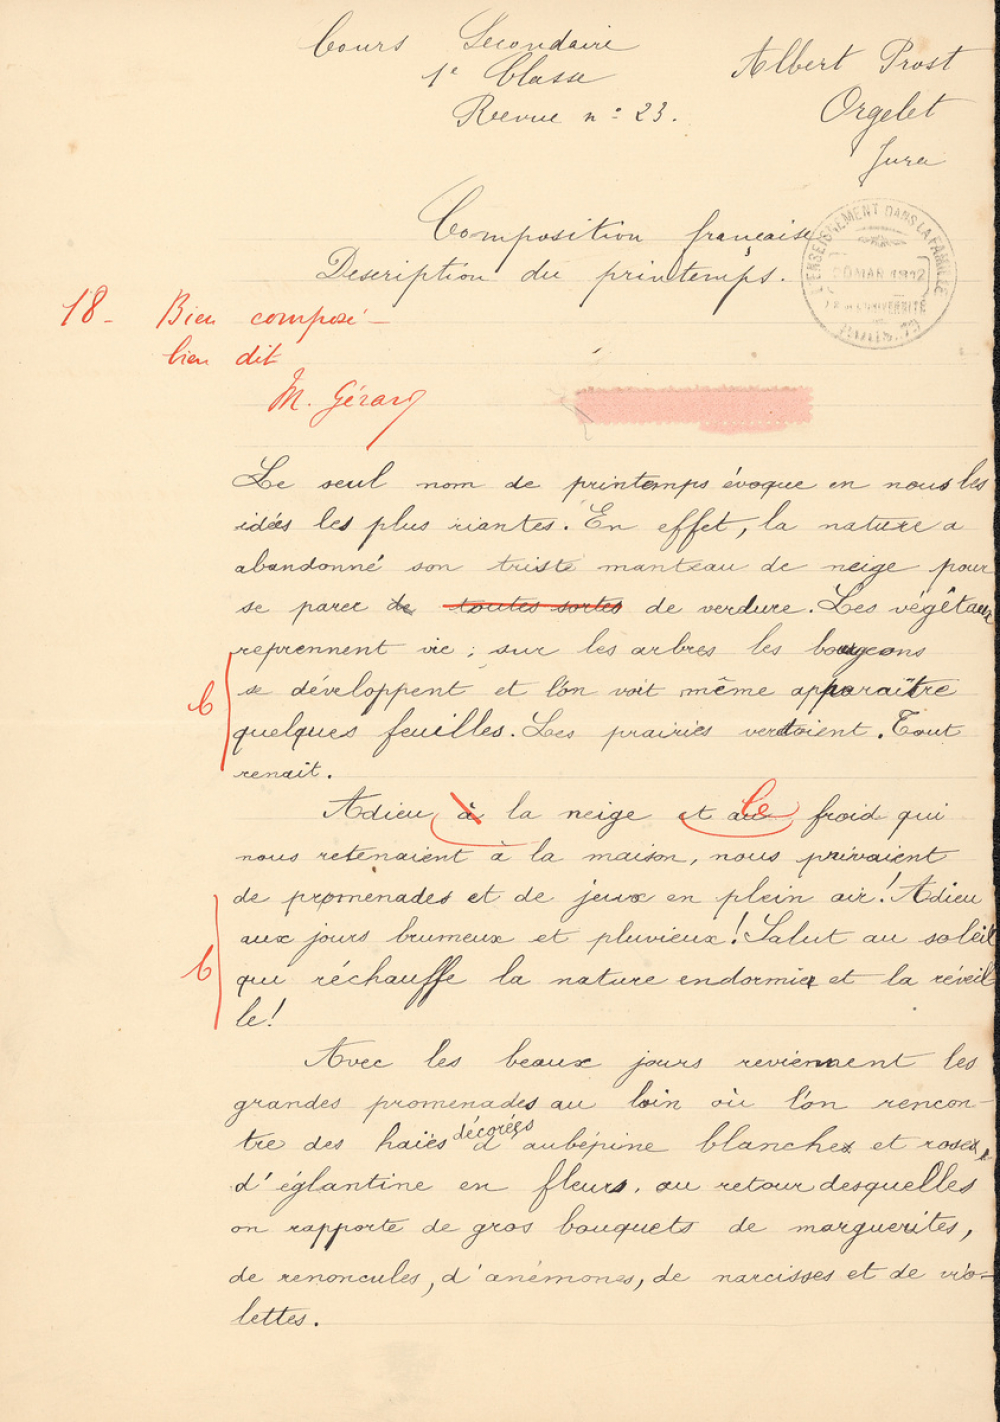 Cours Secondaire
1e Classe
Revue n: 23.
Albert Prost
Orgelet
Jura
Composition française
Description du printemps.
L'ENSEIGNEMENT DANS LA FAMILLE
MAR 1912
18 - Bien composé -
bien dit
M. Gérard
Le seul nom de printemps évoque en nous les
idées les plus riantes. En effet, la nature a
abandonné son triste manteau de neige pour
se parer de toutes sortes de verdure. Les végétaux
reprennent vie ; sur les arbres les bourgeons
se développent et l'on voit même apparaître
quelques feuilles. Les prairies verdoient. Tout
renait.
Adieu à la neige et au le froid qui
nous retenaient à la maison, nous privaient
de promenades et de jeux en plein air! Adieu
aux jours brumeux et pluvieux! Salut au soleil
qui réchauffe la nature endormie et la réveil
le!
b
b
Avec les beaux jours reviennent les
grandes promenades au loin où l'on rencon-
tre des haies décorées d'aubépine blanche et rose,
d'églantine en fleurs, au retour desquelles
on rapporte de gros bouquets de marguerites,
de renoncules, d'anémones, de narcisses et de vio-
lettes.